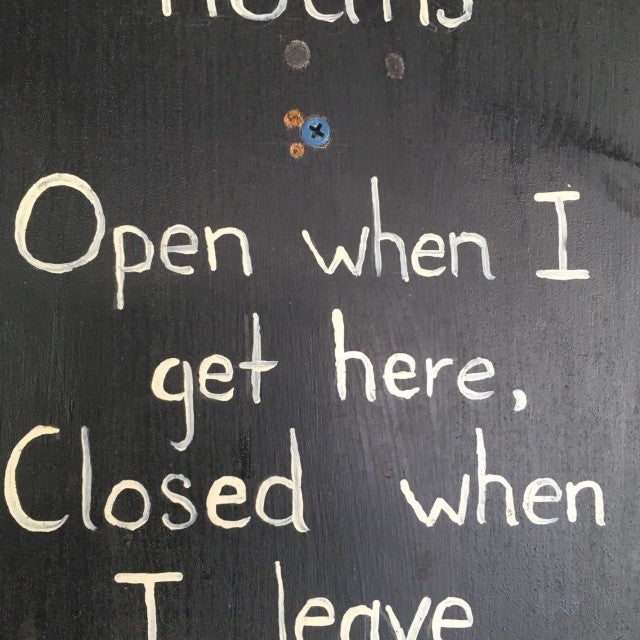 Open when I
get here,
Closed when
I leave